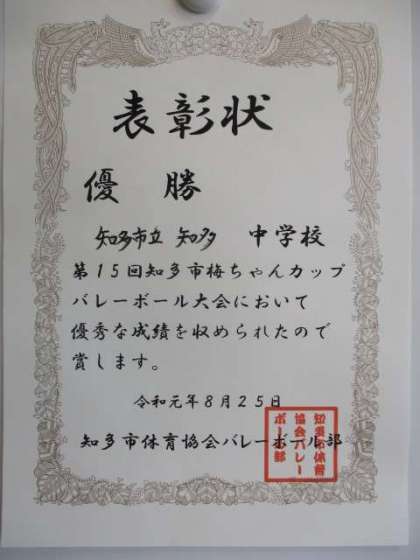 表彰状
優勝
知多市立 知多 中学校
第15回知多市梅ちゃんカップ
バレーボール大会において
優秀な成績を収められたので
賞します。
令和元年8月25日
知多市体育協会バレーボール部
知多市体育
協会バレー
ボール部